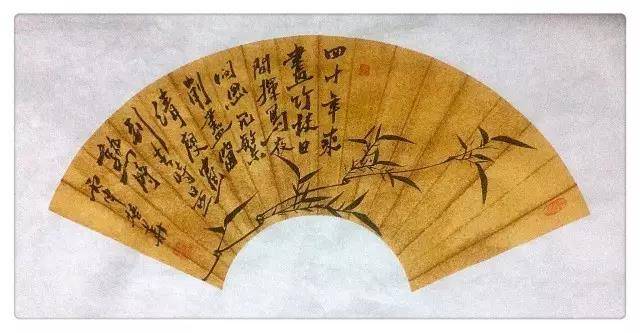 四十年來
畫竹枝日
間揮寫夜
間思冗繁
削盡留
清瘦畫
到生時是
熟時